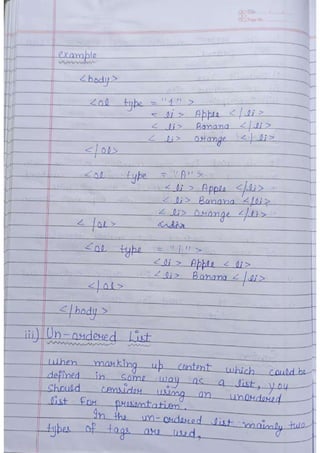 example
<body>
<ol type = "1">
< li > Apple < / li >
< li > Banana < / li >
< li > orange < / li >
</ol>
<ol type = "A">
< li > Apple </li>
< li > Banana </li>
< li > orange </li>
< /ol>
<ol type = "I">
<li> Apple < li >
<li> Banana < / li>
</ol>
</body>
iii) Un-ordered List
when marking up content which could be
defined in some way as a list, you
should consider using an unordered
list for presentation.
In the un-ordered list mainly two
types of tags are used,